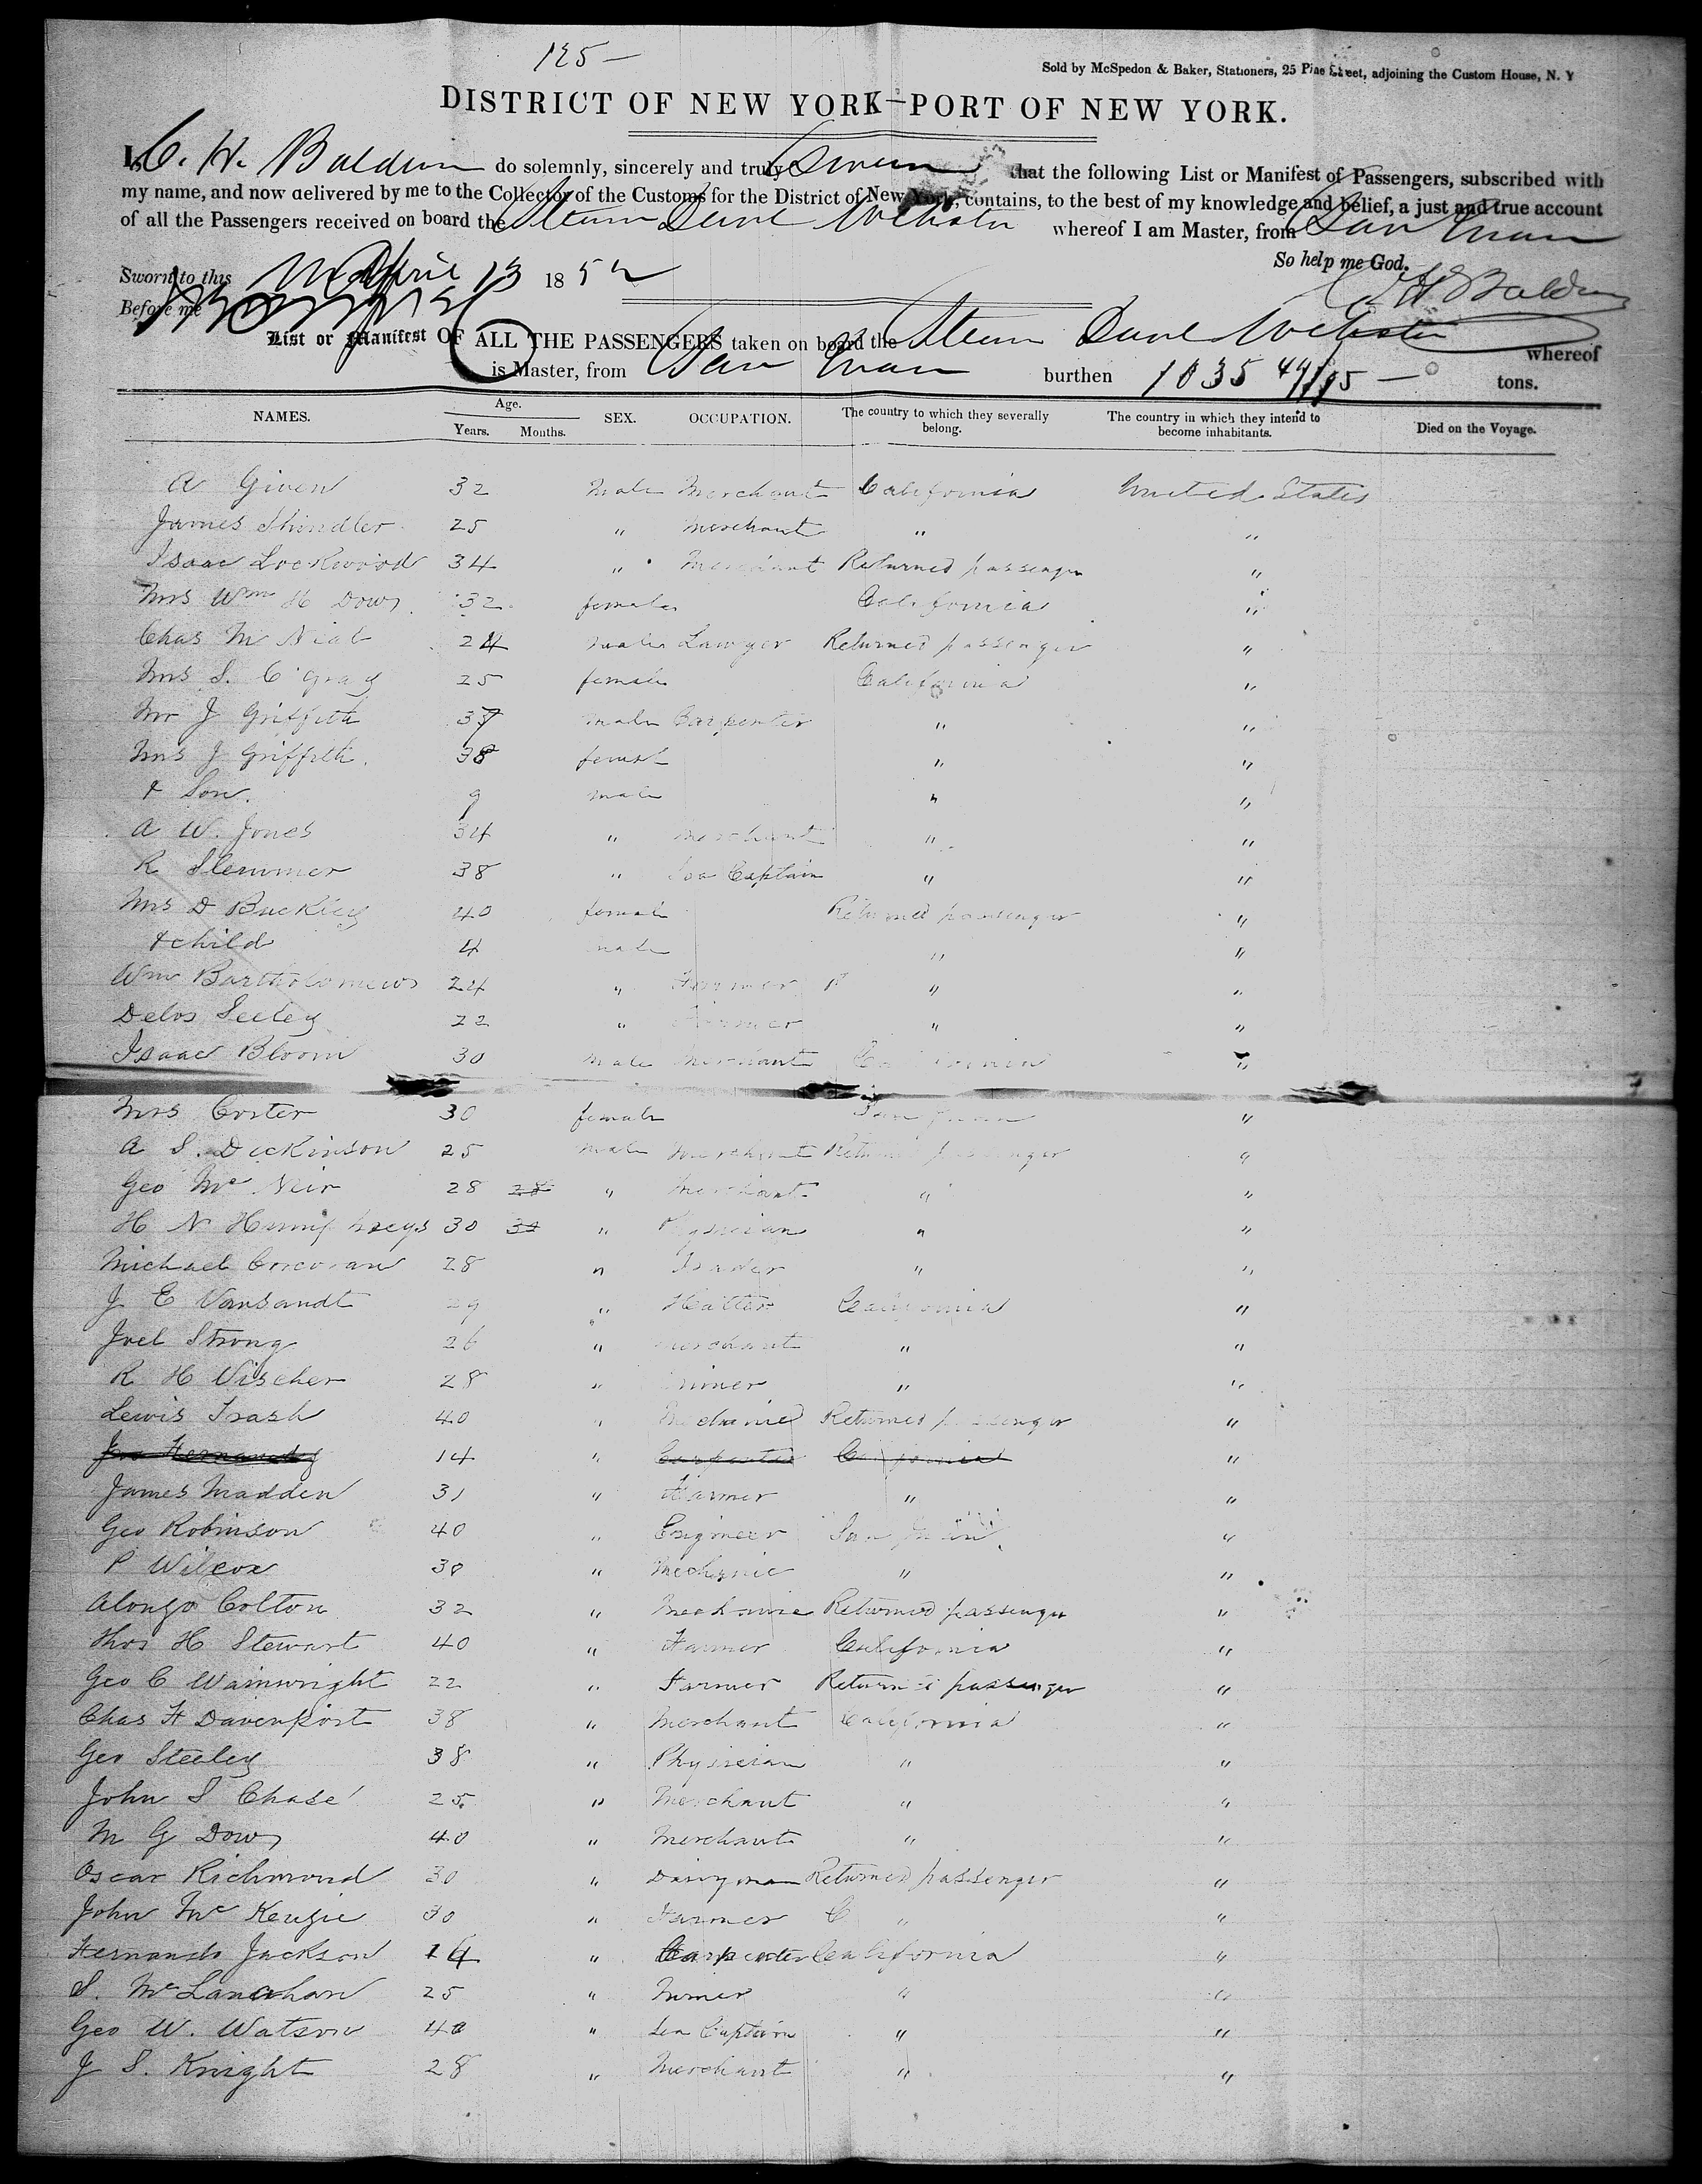 125 —
Sold by McSpedon & Baker, Stationers, 25 Pine Street, adjoining the Custom House, N. Y
DISTRICT OF NEW YORK—PORT OF NEW YORK.
I, C. H. Baldwin do solemnly, sincerely and truly Swear that the following List or Manifest of Passengers, subscribed with
my name, and now delivered by me to the Collector of the Customs for the District of New York, contains, to the best of my knowledge and belief, a just and true account
of all the Passengers received on board the Steam Danl Webster whereof I am Master, from San Juan
So help me God.
Sworn to this April 13 1852 C H Baldwin
Before me
List or Manifest OF ALL THE PASSENGERS taken on board the Steam Danl Webster whereof
is Master, from San Juan burthen 1035 44/95 — tons.
NAMES. Age. Years. Months. SEX. OCCUPATION. The country to which they severally belong. The country in which they intend to become inhabitants. Died on the Voyage.
A Given 32 Male Merchant California United States
James Shindler 25 " Merchant " "
Isaac Lockwood 34 " Merchant Returned passenger "
Mrs Wm H Dows 32 female California "
Chas M Neal 24 male Lawyer Returned passenger "
Mrs S. C Gray 25 female California "
Mr J Griffith 37 male Carpenter " "
Mrs J Griffith 38 female " "
& Son. 9 male " "
A W. Jones 34 " Merchant " "
R Slemmer 38 " Sea Captain " "
Mrs D Buckley 40 female Returned passenger "
& child 4 male " "
Wm Bartholomews 24 " Farmer " "
Delos Seeley 22 " Farmer " "
Isaac Bloom 30 male Merchant California "
Mrs Coster 30 female San Juan "
A S. Dickinson 25 male Merchant Returned passenger "
Geo Mc Neir 28 28 " Merchant " "
H N Humphreys 30 30 " Physician " "
Michael Corcoran 28 " Trader " "
J E Vansandt 29 " Hatter California "
Joel Strong 26 " Merchant " "
R H Vischer 28 " Miner " "
Lewis Trash 40 " Mechanic Returned passenger "
Hernandez 14 " Carpenter California "
James Madden 31 " Farmer " "
Geo Robinson 40 " Engineer San Juan "
P Wilcox 30 " Mechanic " "
Alonzo Colton 32 " Mechanic Returned passenger "
Thos H Stewart 40 " Farmer California "
Geo C Wainwright 22 " Farmer Returned passenger "
Chas H Davenport 38 " Merchant California "
Geo Steeley 38 " Physician " "
John S Chase 25 " Merchant " "
M G Dows 40 " Merchant " "
Oscar Richmond 30 " Dairyman Returned passenger "
John Mc Kenzie 30 " Farmer C " "
Hernando Jackson 14 " Carpenter California "
S. Mc Lanahan 25 " Miner " "
Geo W. Watson 40 " Sea Captain " "
J S. Knight 28 " Merchant " "